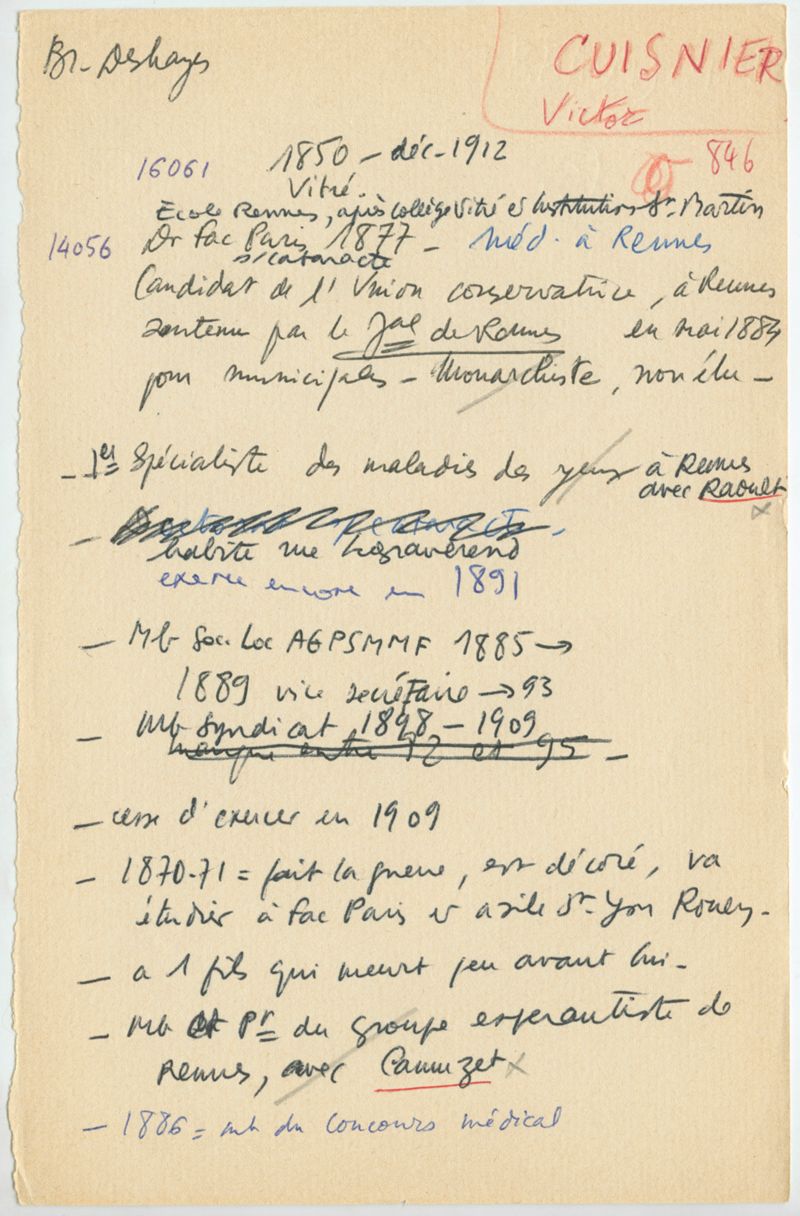 Br. Deshayes
CUISNIER
Victor
16061 1850 - déc. 1912 846
Vitré.
Ecole Rennes, après collège Vitré et Institution St. Martin
14056 Dr Fac Paris 1877 - Méd. à Rennes
s/cataracte
Candidat de l'Union conservatrice, à Rennes
soutenu par le Jal de Rennes en mai 1884
pour municipales - Monarchiste, non élu -
- 1er Spécialiste des maladies des yeux à Rennes
avec Raoult x
- habite rue Legraverend
exerce encore en 1891
- Mb Soc. Loc AGPSMMF 1885 →
1889 vice secrétaire → 93
- Mb Syndicat 1898 - 1909
manque entre 92 et 95 -
- cesse d'exercer en 1909
- 1870-71 = fait la guerre, est décoré, va
étudier à Fac Paris et asile St-Yon Rouen -
- a 1 fils qui meurt peu avant lui -
- Mb et Pr du groupe esperantiste de
Rennes, avec Camuzet x
- 1886 = mb du Concours médical